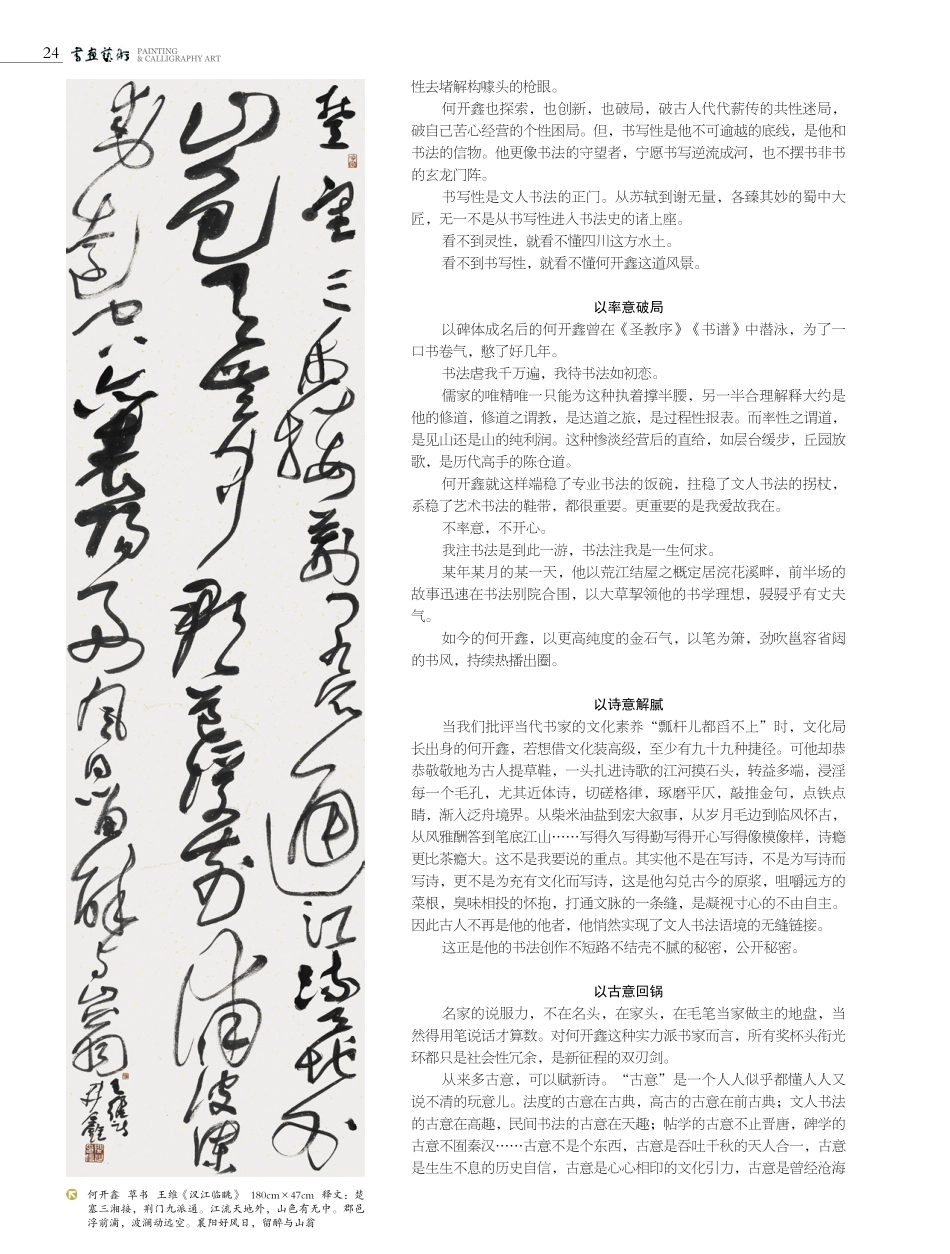 24 书画艺术 PAINTING
& CALLIGRAPHY ART
楚塞三湘接荆门九派通江流天地外
山色有无中郡邑浮前浦波澜
动远空襄阳好风日留醉与山翁
王维诗
开鑫
何开鑫 草书 王维《汉江临眺》 180cm×47cm 释文：楚
塞三湘接，荆门九派通。江流天地外，山色有无中。郡邑
浮前浦，波澜动远空。襄阳好风日，留醉与山翁
性去堵解构噱头的枪眼。
何开鑫也探索，也创新，也破局，破古人代代薪传的共性迷局，
破自己苦心经营的个性困局。但，书写性是他不可逾越的底线，是他和
书法的信物。他更像书法的守望者，宁愿书写逆流成河，也不摆书非书
的玄龙门阵。
书写性是文人书法的正门。从苏轼到谢无量，各臻其妙的蜀中大
匠，无一不是从书写性进入书法史的诸上座。
看不到灵性，就看不懂四川这方水土。
看不到书写性，就看不懂何开鑫这道风景。
以率意破局
以碑体成名后的何开鑫曾在《圣教序》《书谱》中潜泳，为了一
口书卷气，憋了好几年。
书法虐我千万遍，我待书法如初恋。
儒家的唯精唯一只能为这种执着撑半腰，另一半合理解释大约是
他的修道，修道之谓教，是达道之旅，是过程性报表。而率性之谓道，
是见山还是山的纯利润。这种惨淡经营后的直给，如层台缓步，丘园放
歌，是历代高手的陈仓道。
何开鑫就这样端稳了专业书法的饭碗，拄稳了文人书法的拐杖，
系稳了艺术书法的鞋带，都很重要。更重要的是我爱故我在。
不率意，不开心。
我注书法是到此一游，书法注我是一生何求。
某年某月的某一天，他以荒江结屋之概定居浣花溪畔，前半场的
故事迅速在书法别院合围，以大草挈领他的书学理想，骎骎乎有丈夫
气。
如今的何开鑫，以更高纯度的金石气，以笔为箫，劲吹邕容省闼
的书风，持续热播出圈。
以诗意解腻
当我们批评当代书家的文化素养“瓢杆儿都舀不上”时，文化局
长出身的何开鑫，若想借文化装高级，至少有九十九种捷径。可他却恭
恭敬敬地为古人提草鞋，一头扎进诗歌的江河摸石头，转益多端，浸淫
每一个毛孔，尤其近体诗，切磋格律，琢磨平仄，敲推金句，点铁点
睛，渐入泛舟境界。从柴米油盐到宏大叙事，从岁月毛边到临风怀古，
从风雅酬答到笔底江山……写得久写得勤写得开心写得像模像样，诗瘾
更比茶瘾大。这不是我要说的重点。其实他不是在写诗，不是为写诗而
写诗，更不是为充有文化而写诗，这是他勾兑古今的原浆，咀嚼远方的
菜根，臭味相投的怀抱，打通文脉的一条缝，是凝视寸心的不由自主。
因此古人不再是他的他者，他悄然实现了文人书法语境的无缝链接。
这正是他的书法创作不短路不结壳不腻的秘密，公开秘密。
以古意回锅
名家的说服力，不在名头，在家头，在毛笔当家做主的地盘，当
然得用笔说话才算数。对何开鑫这种实力派书家而言，所有奖杯头衔光
环都只是社会性冗余，是新征程的双刃剑。
从来多古意，可以赋新诗。“古意”是一个人人似乎都懂人人又
说不清的玩意儿。法度的古意在古典，高古的古意在前古典；文人书法
的古意在高趣，民间书法的古意在天趣；帖学的古意不止晋唐，碑学的
古意不囿秦汉……古意不是个东西，古意是吞吐千秋的天人合一，古意
是生生不息的历史自信，古意是心心相印的文化引力，古意是曾经沧海